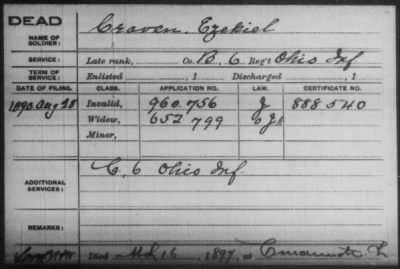 DEAD
NAME OF SOLDIER: Craven, Ezekiel
SERVICE: Late rank, Co. B, 6 Reg't Ohio Inf
TERM OF SERVICE: Enlisted , 1 Discharged , 1
DATE OF FILING. CLASS. APPLICATION NO. LAW. CERTIFICATE NO.
1890 Aug 28 Invalid, 960.756 J 888540
Widow, 652 799
Minor,
ADDITIONAL SERVICES: C. 6 Ohio Inf.
REMARKS:
Died 16, 1897, at